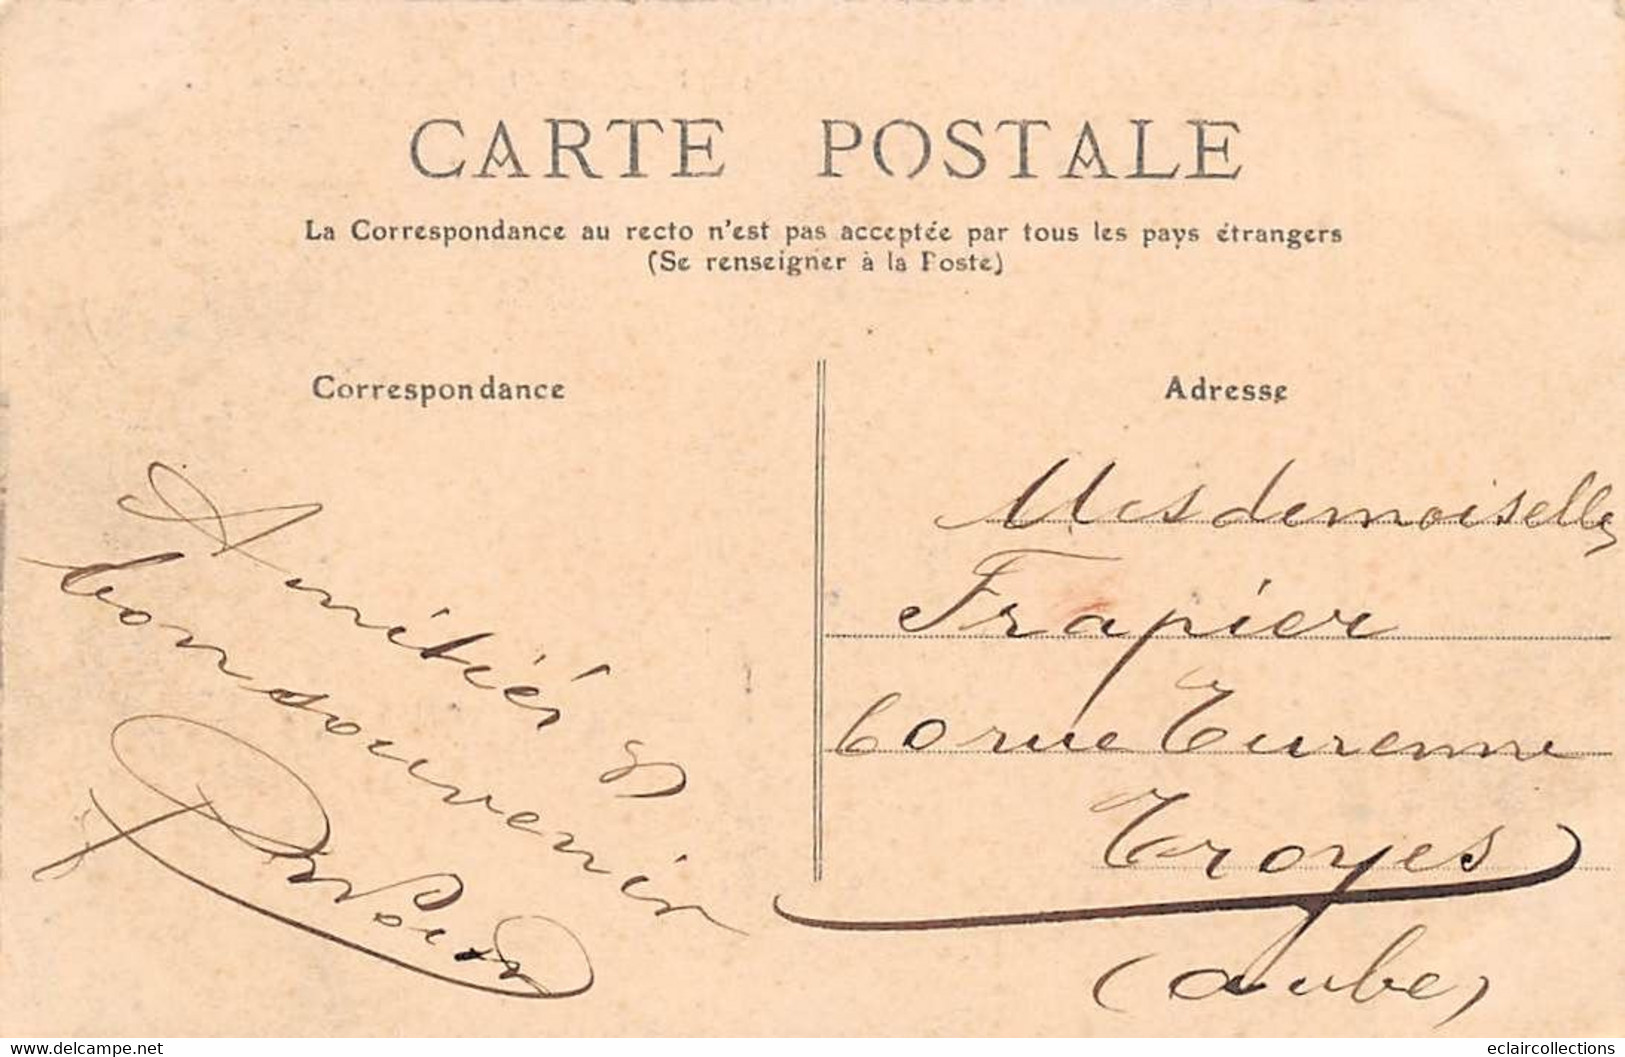 CARTE POSTALE
La Correspondance au recto n'est pas acceptée par tous les pays étrangers
(Se renseigner à la Poste)
Correspondance
Amitiés et
bon souvenir
Adresse
Mesdemoiselles
Frapier
60 rue Turenne
Troyes
(aube)
www.delcampe.net
eclaircollections